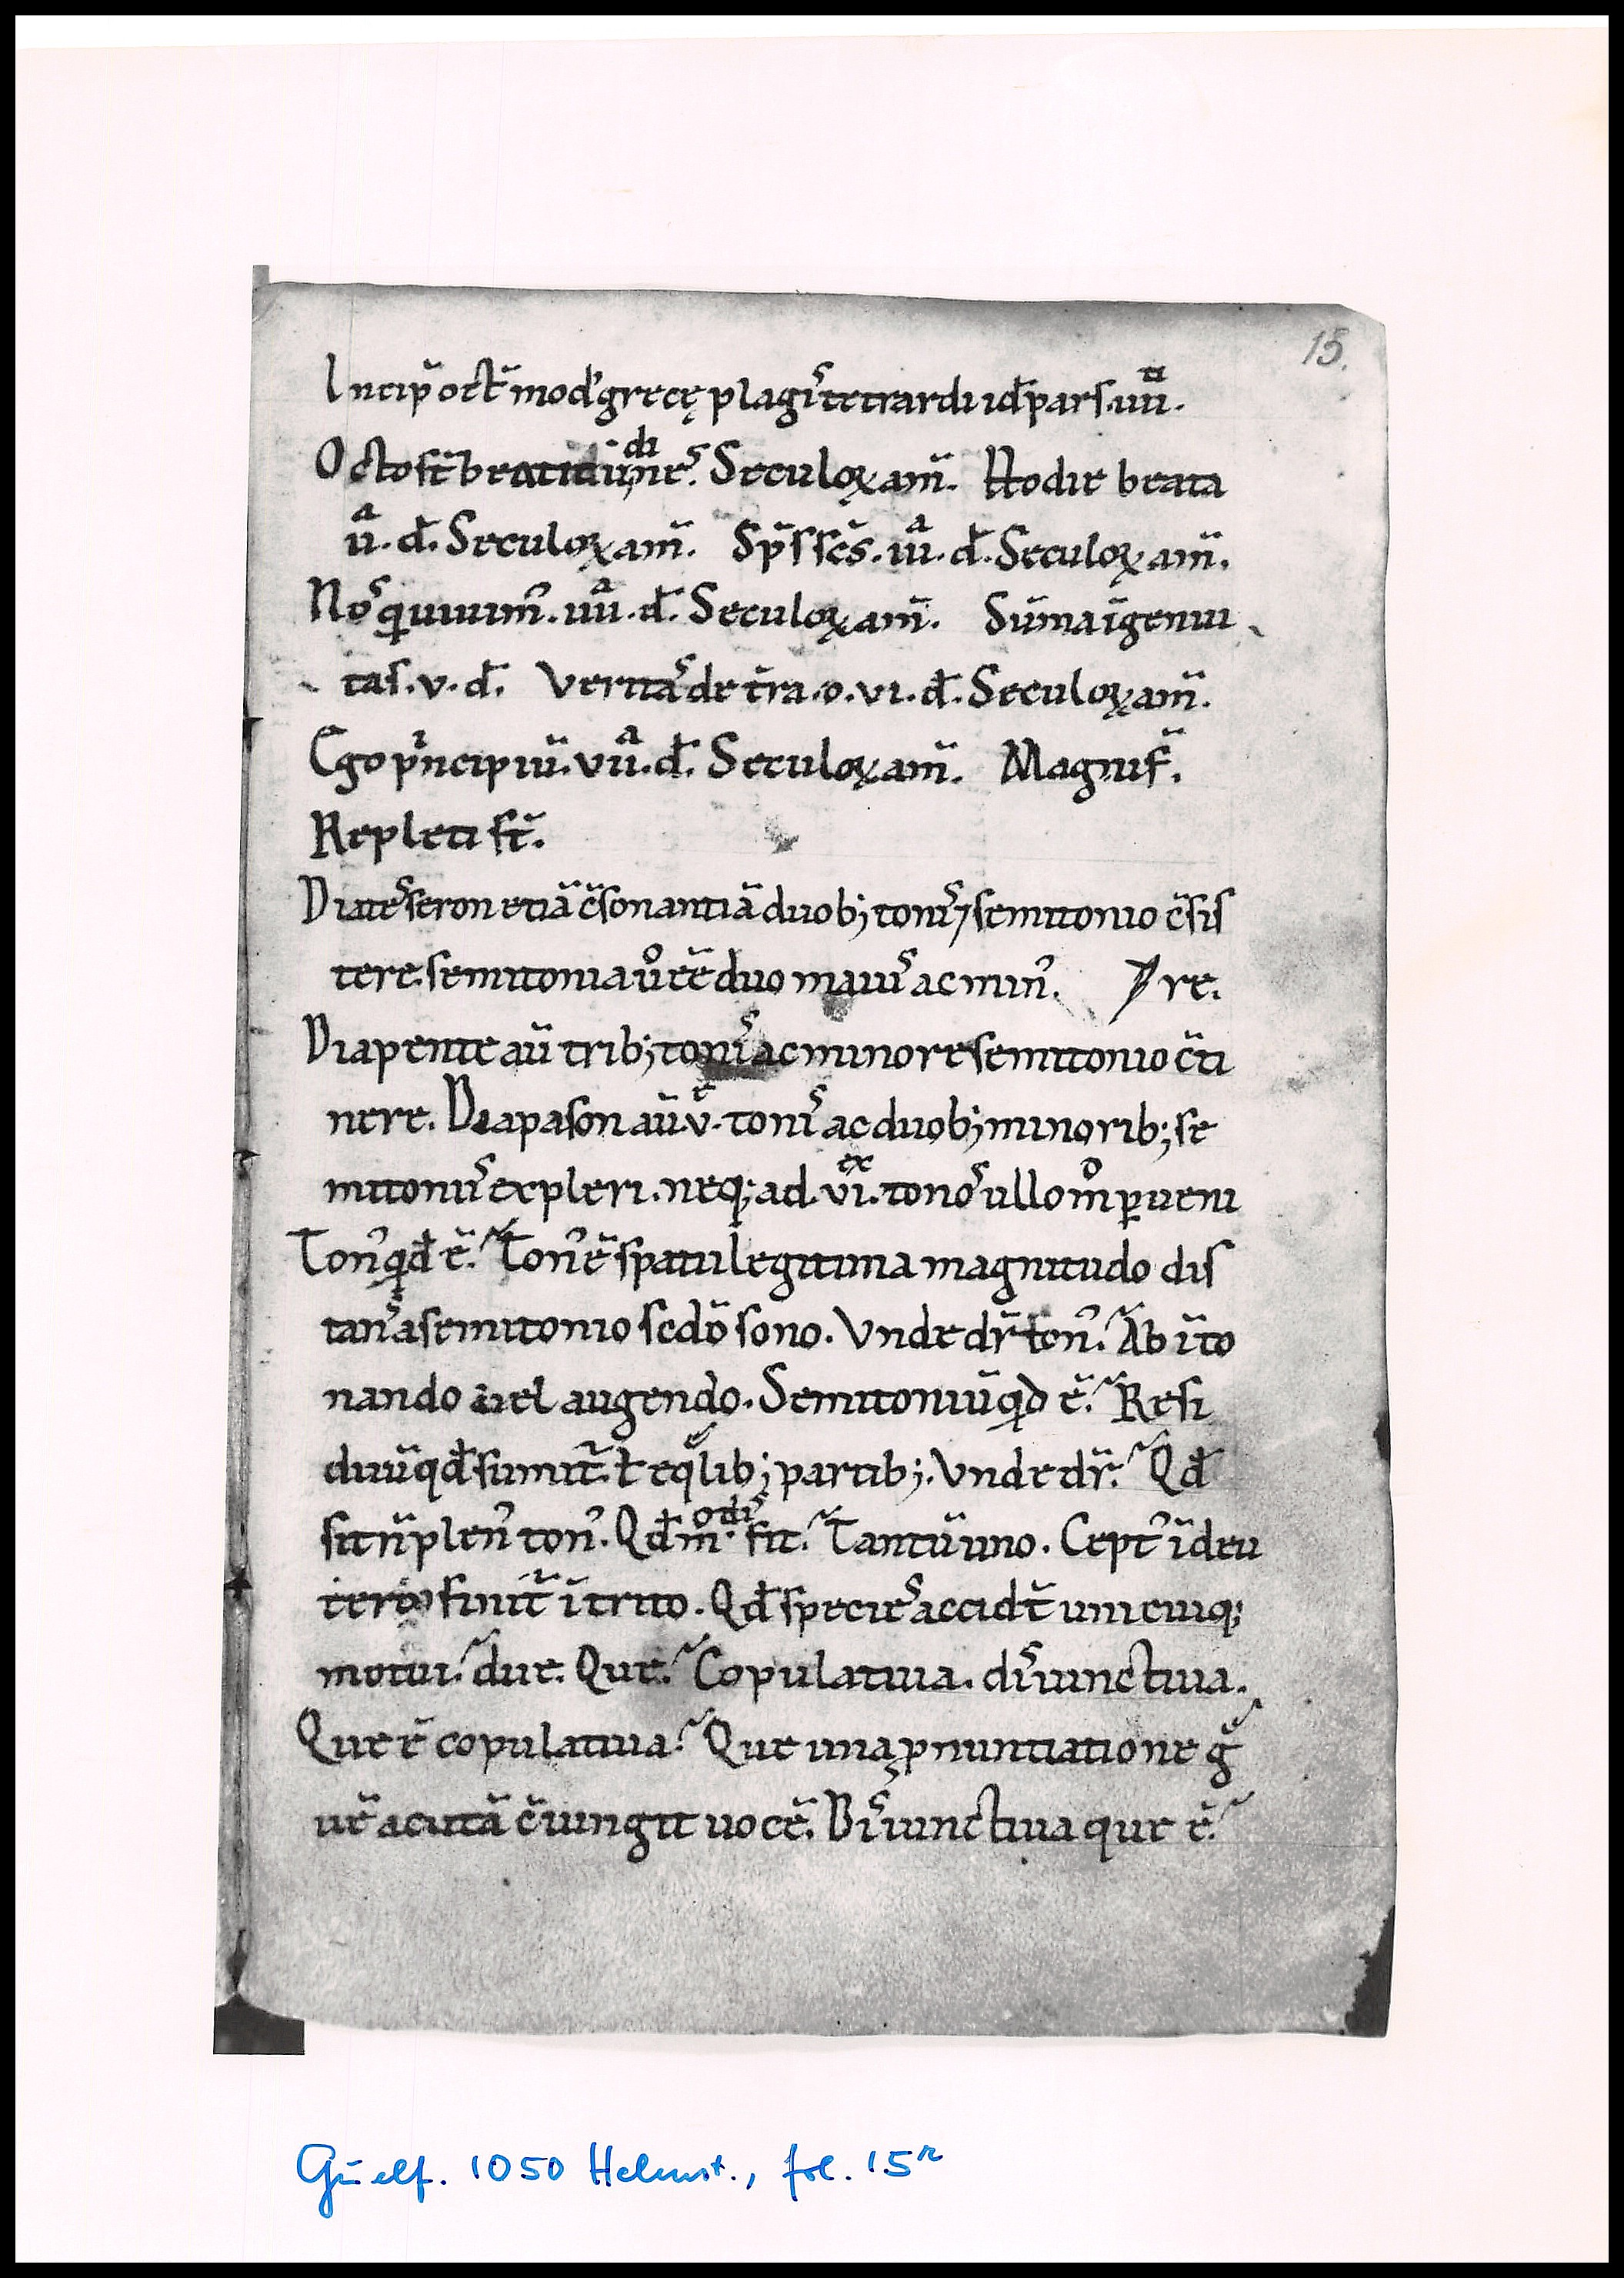 15.
Incip̄ oct̄ mod' grecę plagiˢ tetrardi id̄ pars .iiii̅ᵗⁱ.
Octo st̄ beatitudineˢ. Seculoꝝ am̄. Hodie beata
iiᵃ. d̄. Seculoꝝ am̄. Sp̄s sc̄s. iiiᵃ. d̄. Seculoꝝ am̄.
Noˢ qi uiuim'. iiiiᵃ. d̄. Seculoꝝ am̄. Sum̄a īgenui
tas. v. d̄. Veritaˢ de t̄ra. o. vi. d̄. Seculoꝝ am̄.
Ego pⁱncipiū. viiᵃ. d̄. Seculoꝝ am̄. Magnif̄.
Repleti st̄.
Diateˢseron etiā c̄sonantiā duob; toniˢ ⁊ semitonio c̄sis
tere. semitonia ūo eē duo maiuˢ ac min'. re.
Diapente aū trib; toniˢ ac minore semitonio c̄ti
nere. Diapason aū .v̄. toniˢ ac duob; minorib; se
mitoniiˢ expleri. neq; ad .viᵉˣ. tonoˢ ullo mᵒ ꝑueni
Ton' qd̄ ē? Ton' ē spatii legitima magnitudo dis
tanˢ a semitonio sc̄do sono. Vnde dr̄ ton'? Ab īto
nando uel augendo. Semitoniū qid ē? Resi
duū qd̄ sumit̄. ł eqᵃlib; partib;. Vnde dr̄? Qd̄
sit n̄ plen' ton'. Qd̄ m̄odiˢ fit? Tantū uno. Cept' ī deu
tero finit̄ ī trito. Qd̄ specieˢ accidt̄ unicuiq;
motui? due. Que? Copulatiua. diˢiunctiua.
Que ē copulatiua? Que una ꝓnuntiatione gᵃ
uē acutā c̄iungit uocē. Diˢiunctiua que ē?
Guelf. 1050 Helmst., fol. 15ʳ